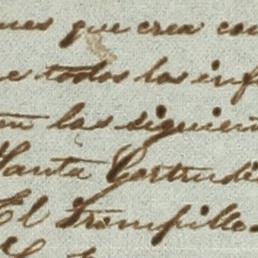 nes que crea con
e todos los inf
en las siguien
Santa Gertrudi
El Trompillo